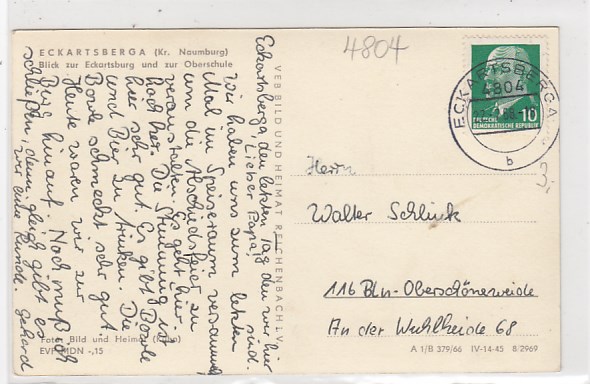 ECKARTSBERGA (Kr. Naumburg)
Blick zur Eckartsburg und zur Oberschule
4804
ECKARTSBERGA
4804
b
10
DEUTSCHE
DEMOKRATISCHE REPUBLIK
VEB BILD UND HEIMAT REICHENBACH I. V.
Eckartsberga, den letzten Tag den wir hier sind.
Lieber Papa!
Wir haben uns zum letzten
Mal im Speiseraum versammelt
um die Abschiedsfeier zu
veranstalten. Es geht hier
hoch her. Die Stimmung ist
hier sehr gut. Es gibt Bowle
und Bier zu trinken. Die
Bowle schmeckt sehr gut
Heute waren wir zur
Burg hinauf. Noch muß ich
schließen, denn gleich gibt es
wir eine Runde. Gerhard
Herrn
Walter Schlink
116 Bln-Oberschöneweide
An der Wuhlheide 68
Foto: Bild und Heimat
EVP MDN -,15
A 1/B 379/66 IV-14-45 8/2969